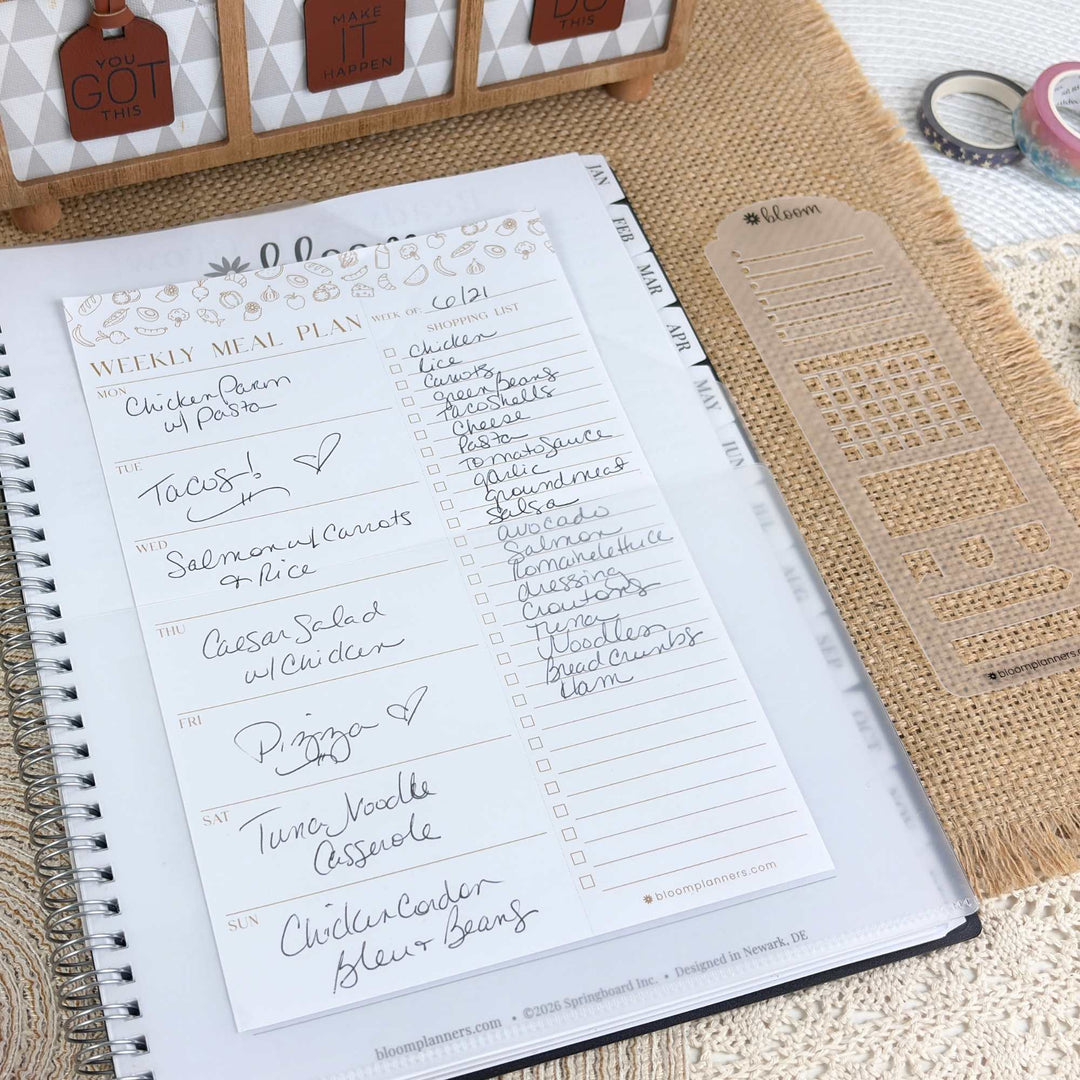 YOU
GOT
THIS
MAKE
IT
HAPPEN
DO
THIS
bloom
JAN
FEB
MAR
APR
MAY
JUN
JUL
AUG
SEP
OCT
NOV
bloom
bloomplanners.c
WEEKLY MEAL PLAN
WEEK OF: 6/21
MON
Chicken Parm
w/ Pasta
TUE
Tacos!
WED
Salmon w/ Carrots
& Rice
THU
Caesar Salad
w/ Chicken
FRI
Pizza
SAT
Tuna Noodle
Casserole
SUN
Chicken Cordon
Bleu + Beans
SHOPPING LIST
Chicken
Rice
Carrots
green Beans
Taco Shells
Cheese
Pasta
Tomato Sauce
garlic
ground meat
Salsa
avocado
Salmon
Romaine lettuce
dressing
Croutons
Tuna
Noodles
Bread Crumbs
Ham
bloomplanners.com
bloomplanners.com • ©2026 Springboard Inc. • Designed in Newark, DE